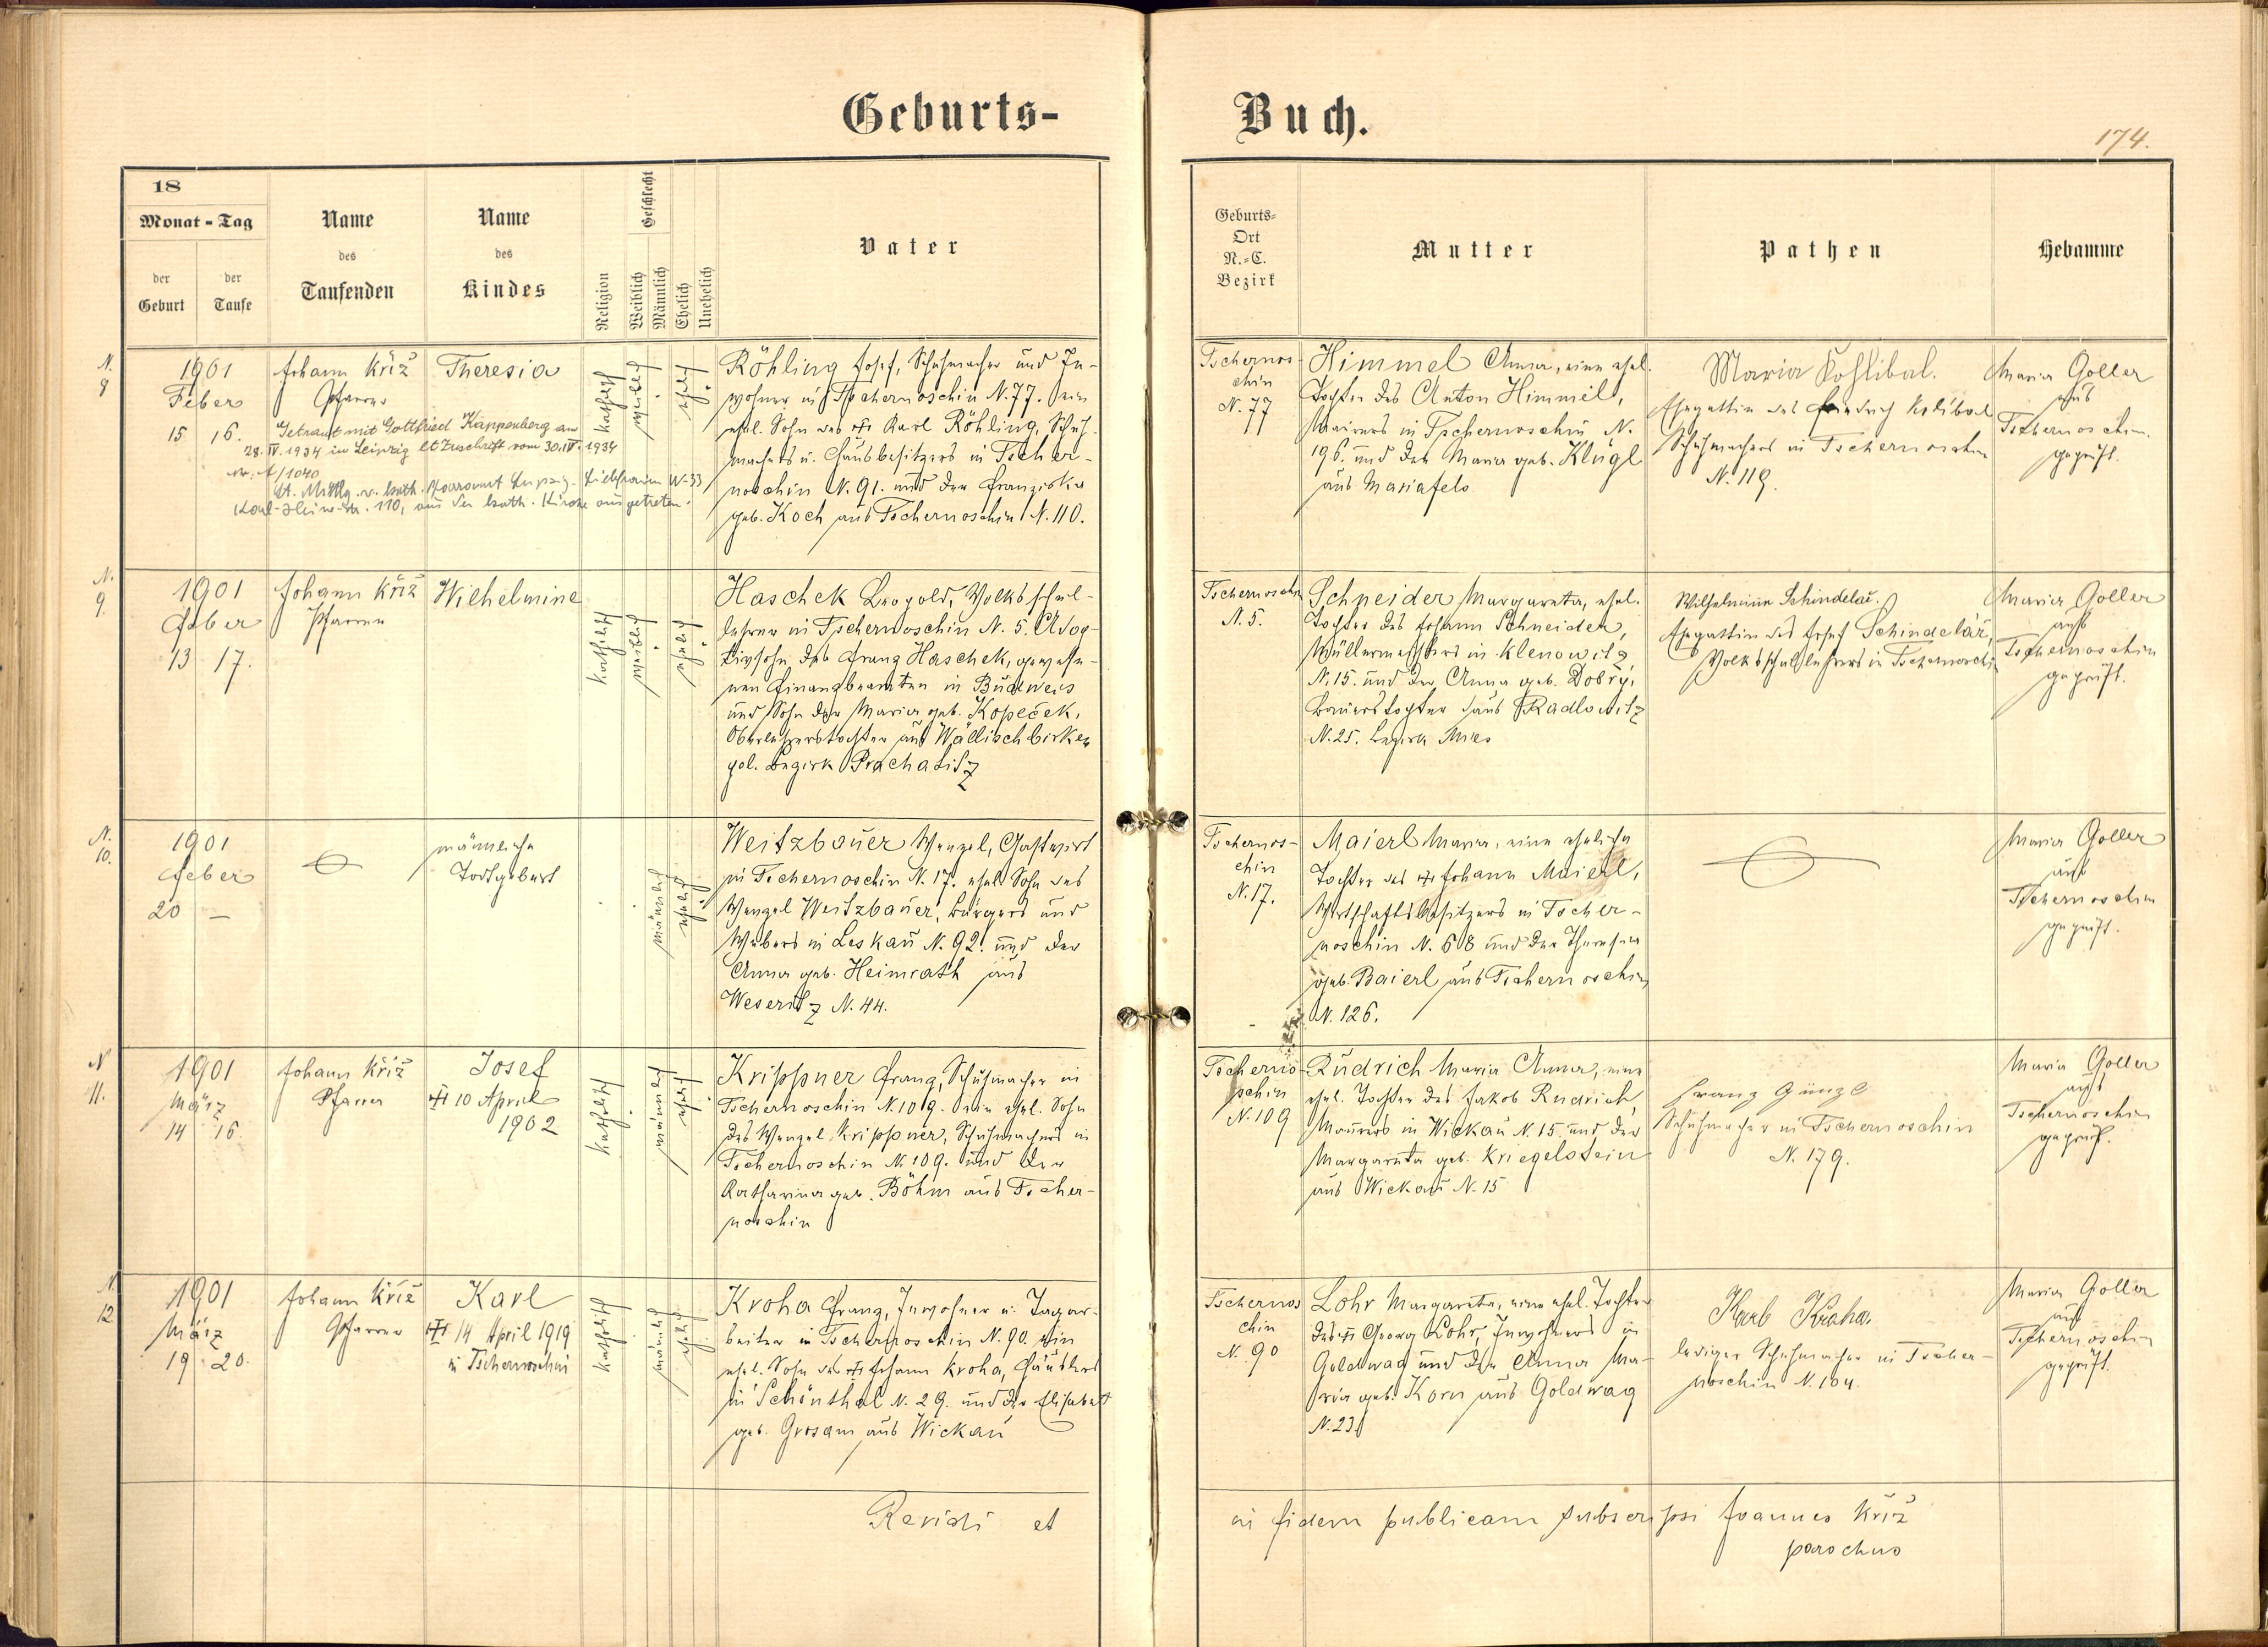 Geburts-
Buch.
174.
18
Monat - Tag
der Geburt
der Taufe
Name des Taufenden
Name des Kindes
Religion
Geschlecht
Weiblich
Männlich
Ehelich
Unehelich
Vater
Geburts-
Ort
N.-C.
Bezirk
Mutter
Pathen
Hebamme
N. 8
1901
Feber
15 16.
Johann Kříž
Pfarrer
Theresia
Getraut mit Gottfried Kappenberg am
28. IV. 1934 in Leipzig lt Zuschrift vom 30. IV. 1934
/1040
lt. Mittlg. v. kath. Pfarramt Leipzig- W-33
110, aus der kath. Kirche ausgetreten.
katholisch
weiblich
ehelich
Röhling Josef, Schuhmacher und In-
wohner in Tschernoschin N. 77. ein
ehel. Sohn des Karl Röhling, Schuh-
machers u. Hausbesitzers in Tscher-
noschin N. 91. und der Franziska
geb. Koch aus Tschernoschin N. 110.
Tschernos-
chin
N. 77
Himmel Anna, eine ehel.
Tochter des Anton Himmel,
Maurers in Tschernoschin N.
196. und der Maria geb. Klügl
aus Mariafels
Maria Kohlibal.
Ehegattin des Friedrich Kolibal
Schuhmachers in Tschernoschin
N. 119.
Maria Goller
aus
Tschernoschin.
geprüft.
N. 9.
1901
Feber
13 17.
Johann Kříž
Pfarrer
Wilhelmine
katholisch
weiblich
ehelich
Haschek Leopold, Volksschul-
lehrer in Tschernoschin N. 5. Adop-
tivsohn des Franz Haschek, gewese-
nen Finanzbeamten in Budweis
und Sohn der Maria geb. Kopeček,
Oberlehrerstochter aus Wällischbirken
pol. Bezirk Prachatitz
Tschernoschin
N. 5.
Schneider Margareta, ehel.
Tochter des Johann Schneider,
Müllermeisters in Klenowitz
N. 15. und der Anna geb. Dobrý,
Bauerstochter aus Radlowitz
N. 25. Bezirk Mies
Wilhelmine Schindelař.
Ehegattin des Josef Schindelář,
Volksschullehrers in Tschernoschin
Maria Goller
aus
Tschernoschin
geprüft.
N. 10.
1901
Feber
20 —
männliche
Todtgeburt
männlich
ehelich
Weitzbauer Wenzel, Gastwirt
in Tschernoschin N. 17. ehel. Sohn des
Wenzel Weitzbauer, Bürgers und
Webers in Leskau N. 92. und der
Anna geb. Heimrath aus
Weseritz N. 44.
Tschernos-
chin
N. 17.
Maierl Maria, eine eheliche
Tochter des Johann Maierl,
Wirtschaftsbesitzers in Tscher-
noschin N. 68 und der Theresia
geb. Baierl aus Tschernoschin
N. 126.
Maria Goller
aus
Tschernoschin
geprüft.
N. 11.
1901
März
14 16.
Johann Kříž
Pfarrer
Josef
10 April
1902
katholisch
männlich
ehelich
Krippner Franz, Schuhmacher in
Tschernoschin N. 109. ein ehel. Sohn
des Wenzel Krippner, Schuhmachers in
Tschernoschin N. 109. und der
Katharina geb. Böhm aus Tscher-
noschin
Tscherno-
schin
N. 109
Rudrich Maria Anna, eine
ehel. Tochter des Jakob Rudrich,
Maurers in Wickau N. 15 und der
Margareta geb. Kriegelstein
aus Wickau N. 15
Franz Günzl
Schuhmacher in Tschernoschin
N. 179.
Maria Goller
aus
Tschernoschin
geprüft.
N. 12
1901
März
19 20.
Johann Kříž
Pfarrer
Karl
14 April 1919
in Tschernoschin
katholisch
männlich
ehelich
Kroha Franz, Inwohner u. Tagar-
beiter in Tschernoschin N. 90. ein
ehel. Sohn des Johann Kroha, Häuslers
in Schönthal N. 29. und der Elisabet
geb. Grosam aus Wickau
Tschernos
chin
N. 90
Lohr Margareta, eine ehel. Tochter
des Georg Lohr, Inwohners in
Goldwag und der Anna Ma-
ria geb. Korn aus Goldwag
N. 23
Karl Kraha.
lediger Schuhmacher in Tscher-
noschin N. 104.
Maria Goller
aus
Tschernoschin
geprüft.
Revidi et
in fidem publicam subscripsi Joannes Kříž
parochus